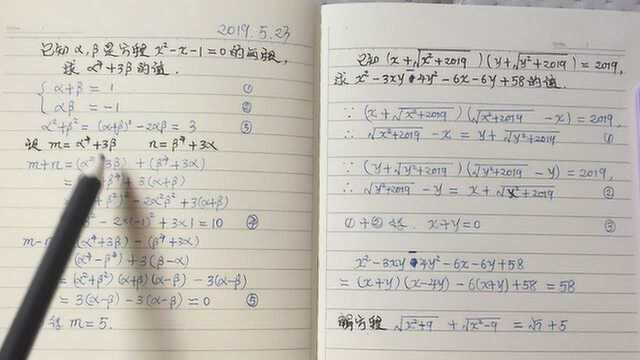 2019.5.23
已知 α,β 是方程 x²-x-1=0 的两根,
求 α⁴+3β 的值.
{ α+β = 1 ①
{ αβ = -1 ②
α²+β² = (α+β)² - 2αβ = 3 ③
设 m = α⁴+3β n = β⁴+3α
m+n = (α⁴+3β) + (β⁴+3α)
= β⁴ + 3(α+β)
β²)² - 2α²β² + 3(α+β)
- 2×(-1)² + 3×1 = 10 ④
m-n (α⁴+3β) - (β⁴+3α)
(α⁴-β⁴) + 3(β-α)
= (α²+β²)(α+β)(α-β) - 3(α-β)
= 3(α-β) - 3(α-β) = 0 ⑤
m = 5.
已知 (x+√x²+2019)(y+√y²+2019) = 2019,
求 x²-3xy-4y²-6x-6y+58 的值.
∵ (x+√x²+2019)(√x²+2019 - x) = 2019,
∴ √x²+2019 - x = y+√y²+2019 ①
∵ (y+√y²+2019)(√y²+2019 - y) = 2019,
∴ √y²+2019 - y = x+√x²+2019 ②
①+② 得. x+y=0 ③
x²-3xy-4y²-6x-6y+58
= (x+y)(x-4y)-6(x+y)+58 = 58
解方程 √x²+9 + √x²-9 = √7 + 5